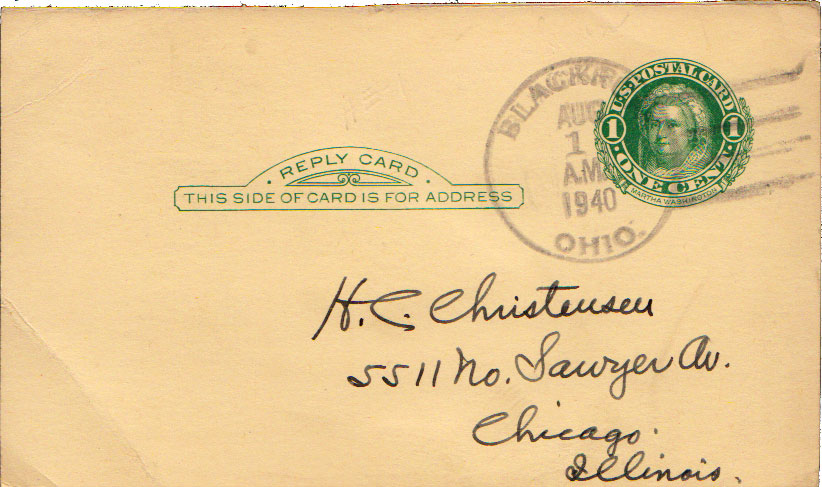 U.S. POSTAL CARD
1 1
ONE CENT
MARTHA WASHINGTON
AUG
1
A.M.
1940
OHIO.
· REPLY CARD ·
THIS SIDE OF CARD IS FOR ADDRESS
H. C. Christensen
5511 No. Sawyer Av.
Chicago.
Illinois.